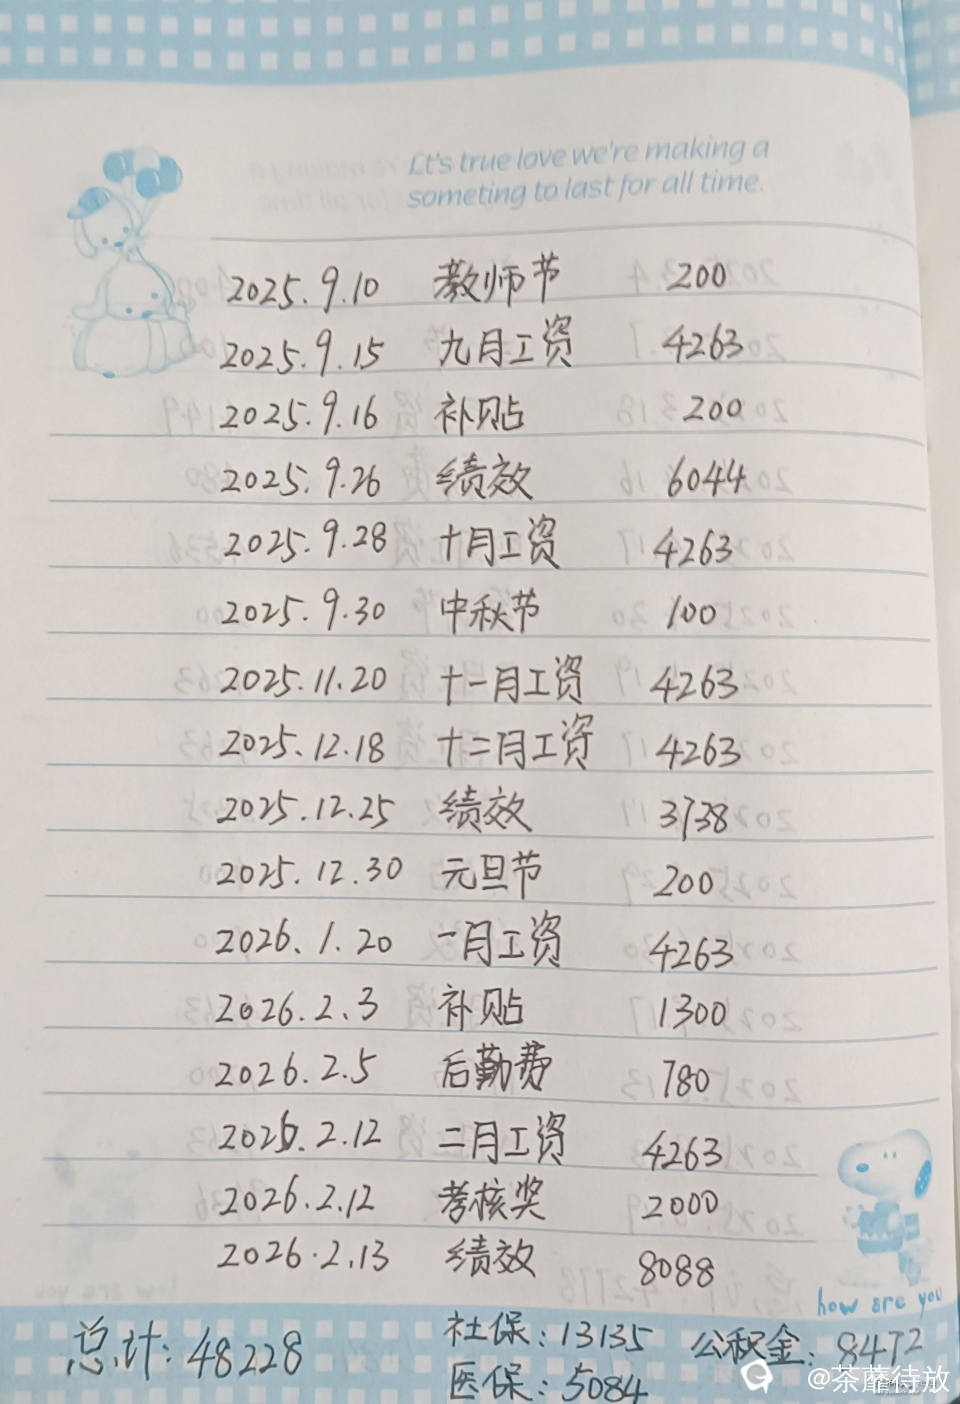 Lt's true love we're making a
someting to last for all time.
2025.9.10 教师节 200
2025.9.15 九月工资 4263
2025.9.16 补贴 200
2025.9.26 绩效 6044
2025.9.28 十月工资 4263
2025.9.30 中秋节 100
2025.11.20 十一月工资 4263
2025.12.18 十二月工资 4263
2025.12.25 绩效 3738
2025.12.30 元旦节 200
2026.1.20 一月工资 4263
2026.2.3 补贴 1300
2026.2.5 后勤费 780
2026.2.12 二月工资 4263
2026.2.12 考核奖 2000
2026.2.13 绩效 8088
how are you
总计:48228 社保:13135 公积金:8472
医保:5084
@茶蘼待放